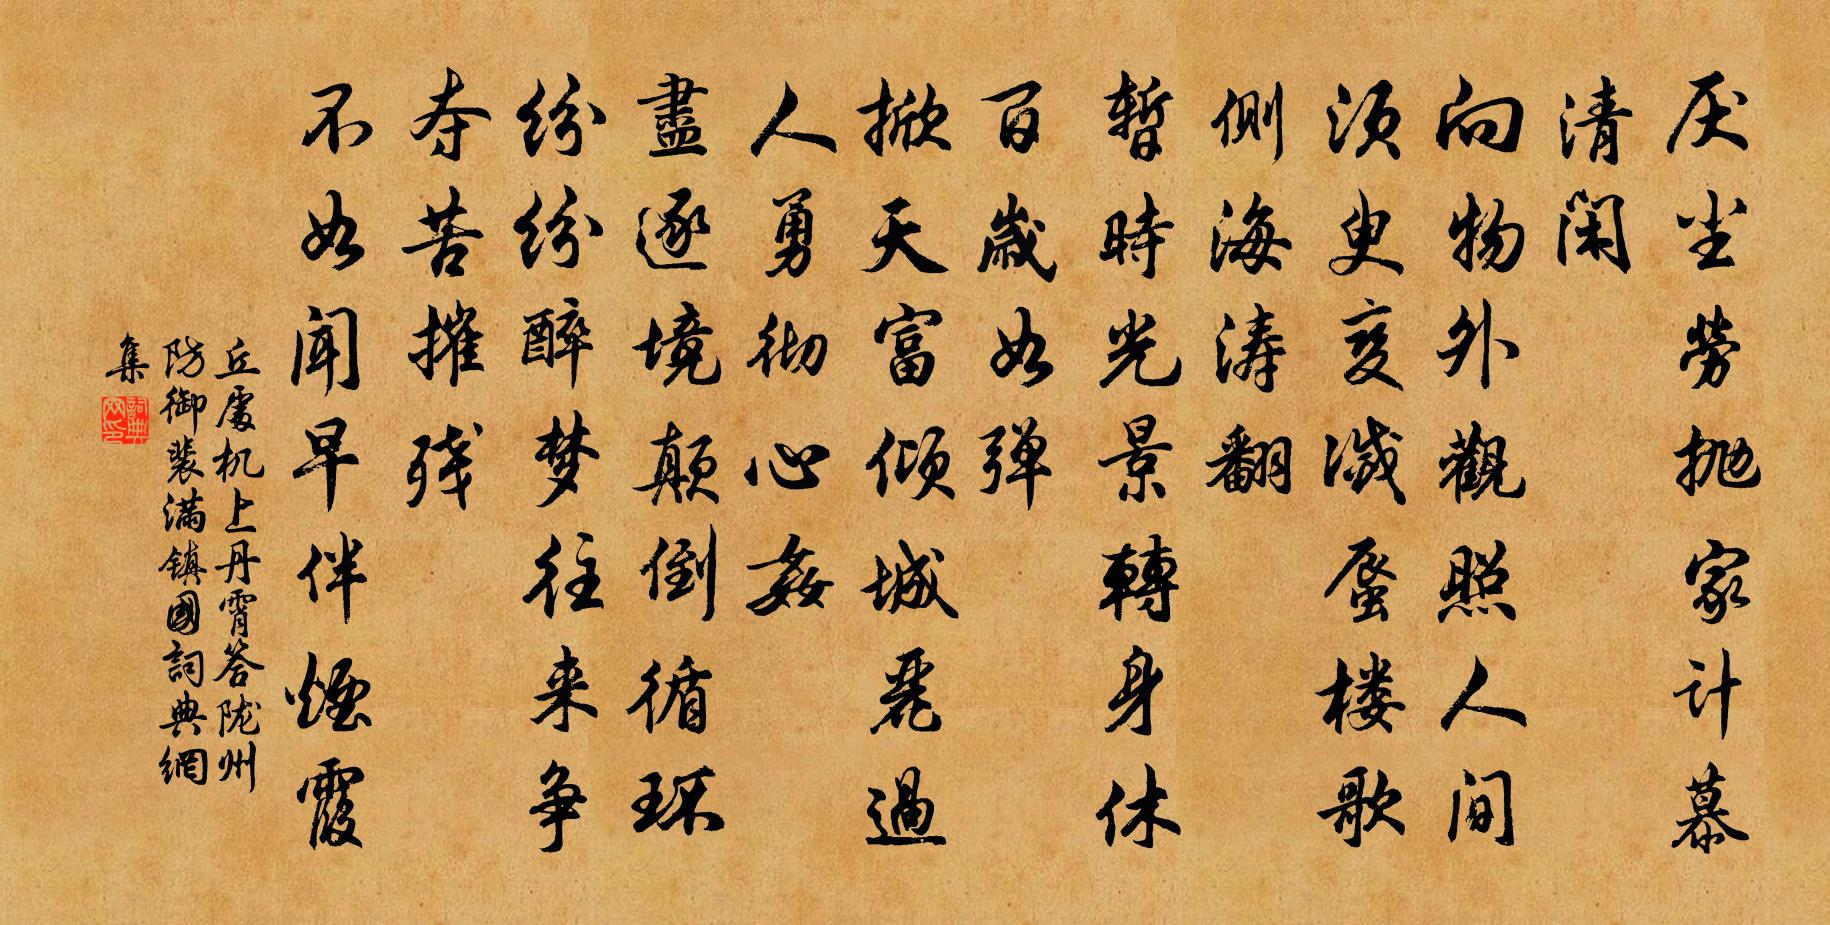 厌尘劳抛家计慕
清闲
向物外觀照人间
须臾变灭蜃楼歌
侧海涛翻
暂時光景轉身休
百歲如弹
掀天富倾城麗過
人勇彻心姦
盡逐境颠倒循环
纷纷醉梦往来争
夺苦摧残
不如闻早伴煙霞
丘處机上丹霄答陇州
防御裴满镇國詞典網
集
詞典網印